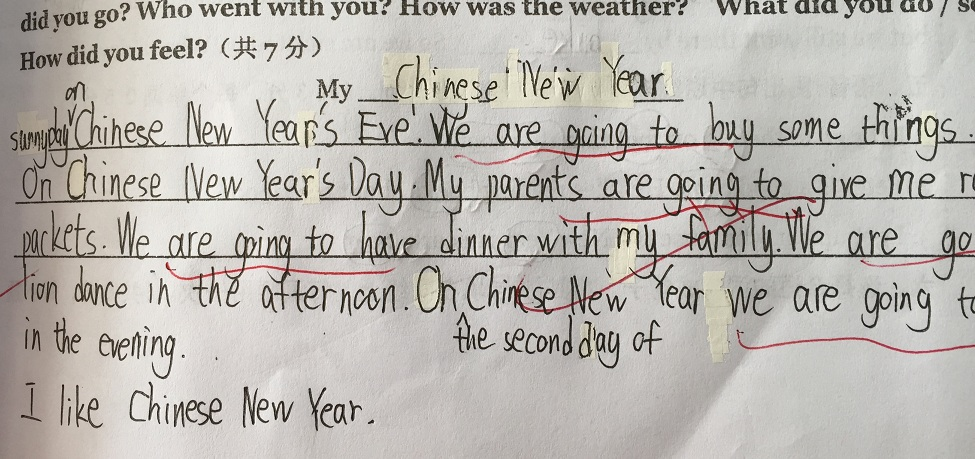 did you go? Who went with you? How was the weather? What did you do / s
How did you feel? (共 7 分)
My Chinese New Year.
on
sunnyday Chinese New Year's Eve. We are going to buy some things
On Chinese New Year's Day. My parents are going to give me r
packets. We are going to have dinner with my family. We are go
lion dance in the afternoon. On Chinese New Year we are going t
in the evening. the second day of
I like Chinese New Year.